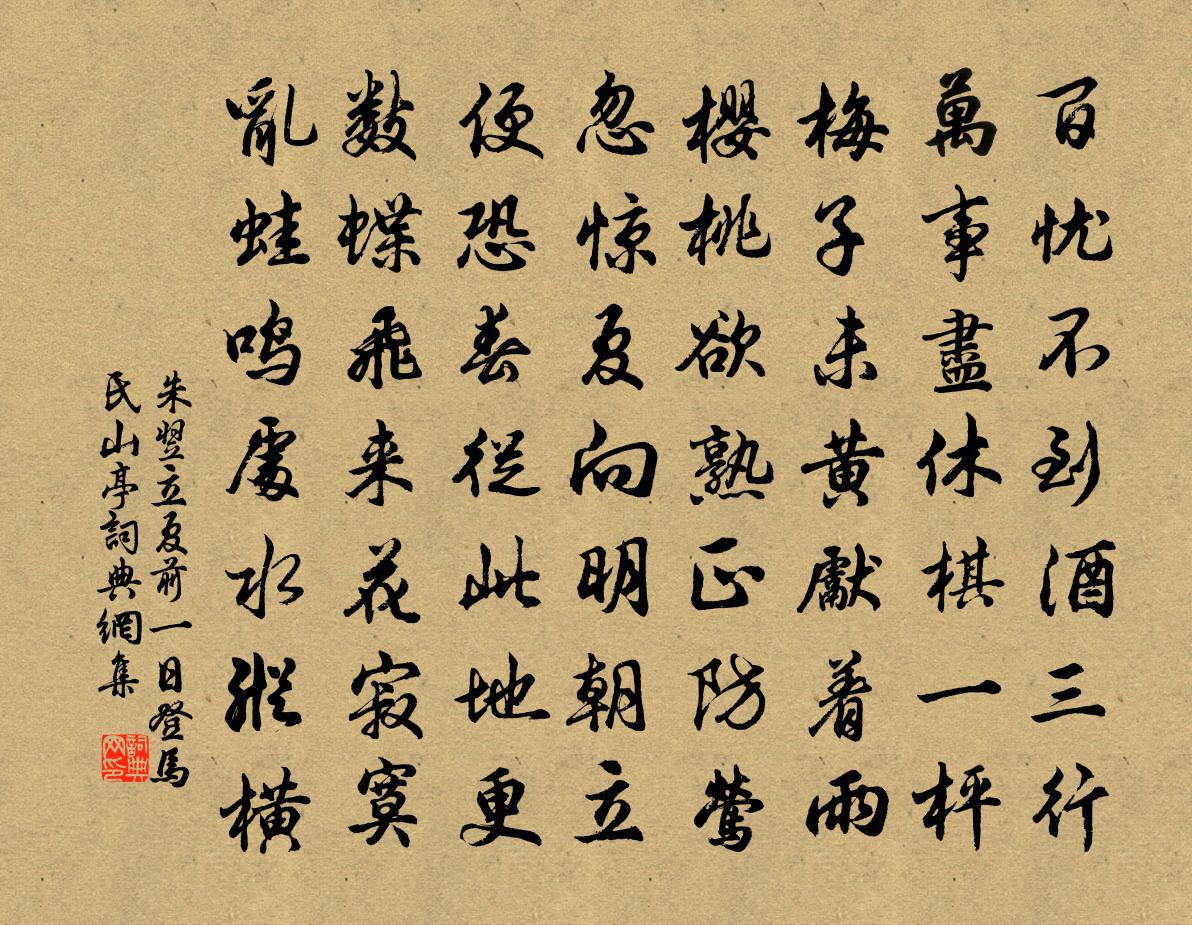 百忧不到酒三行
萬事盡休棋一枰
梅子未黄厭着雨
櫻桃欲熟正防莺
忽惊夏向明朝立
便恐春從此地更
数蝶飛来花寂寞
亂蛙鸣處水縱横
朱翌立夏前一日登馬
氏山亭詞典網集
詞典网印